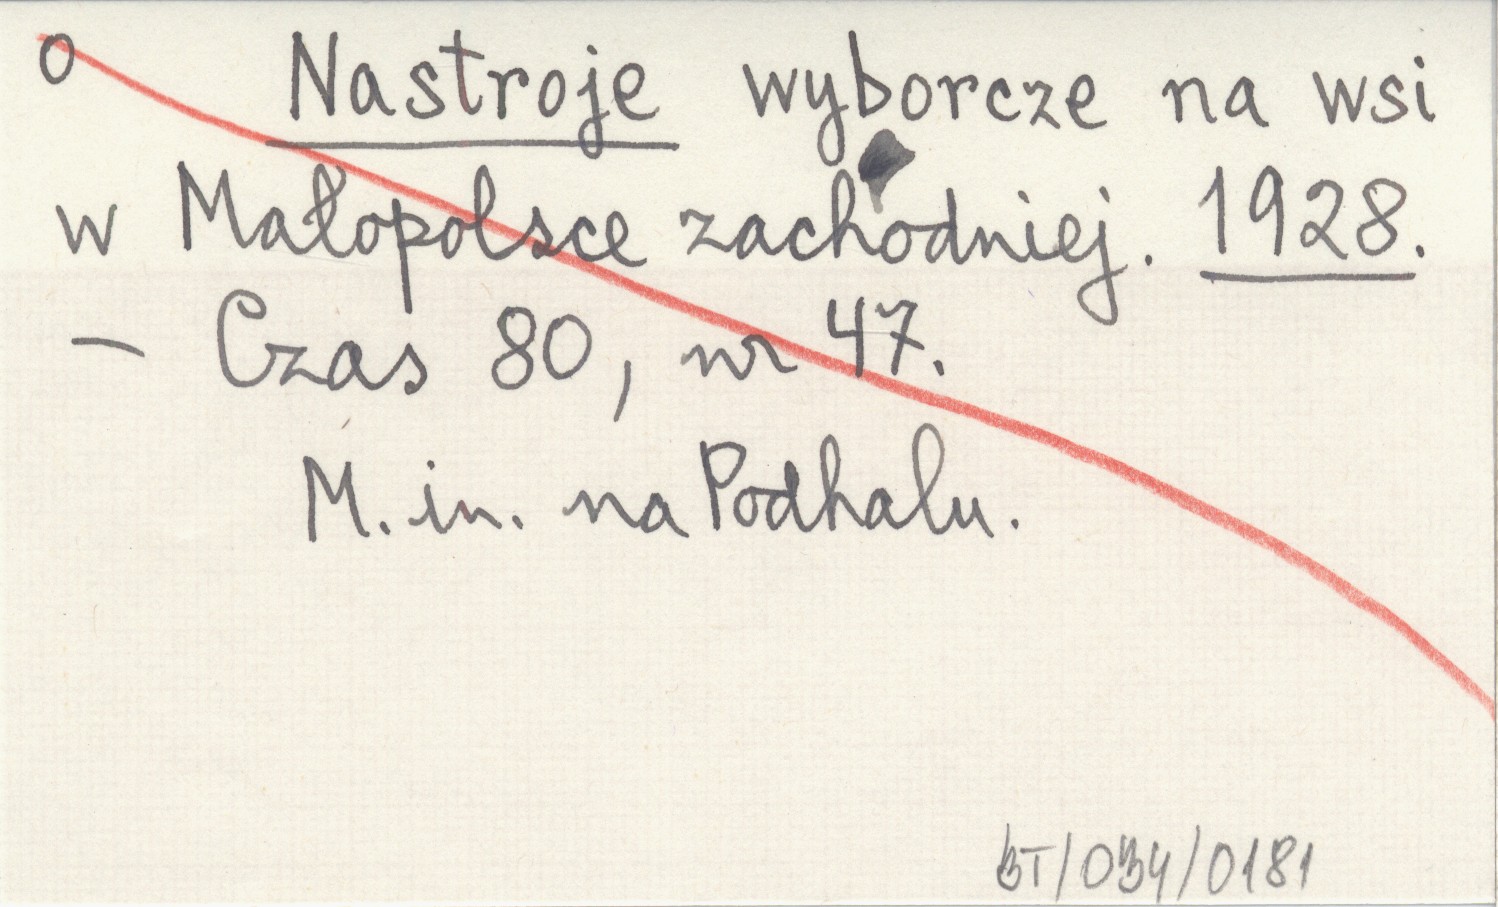 o Nastroje wyborcze na wsi
w Małopolsce zachodniej. 1928.
– Czas 80, nr 47.
M. in. na Podhalu.
BT/034/0181